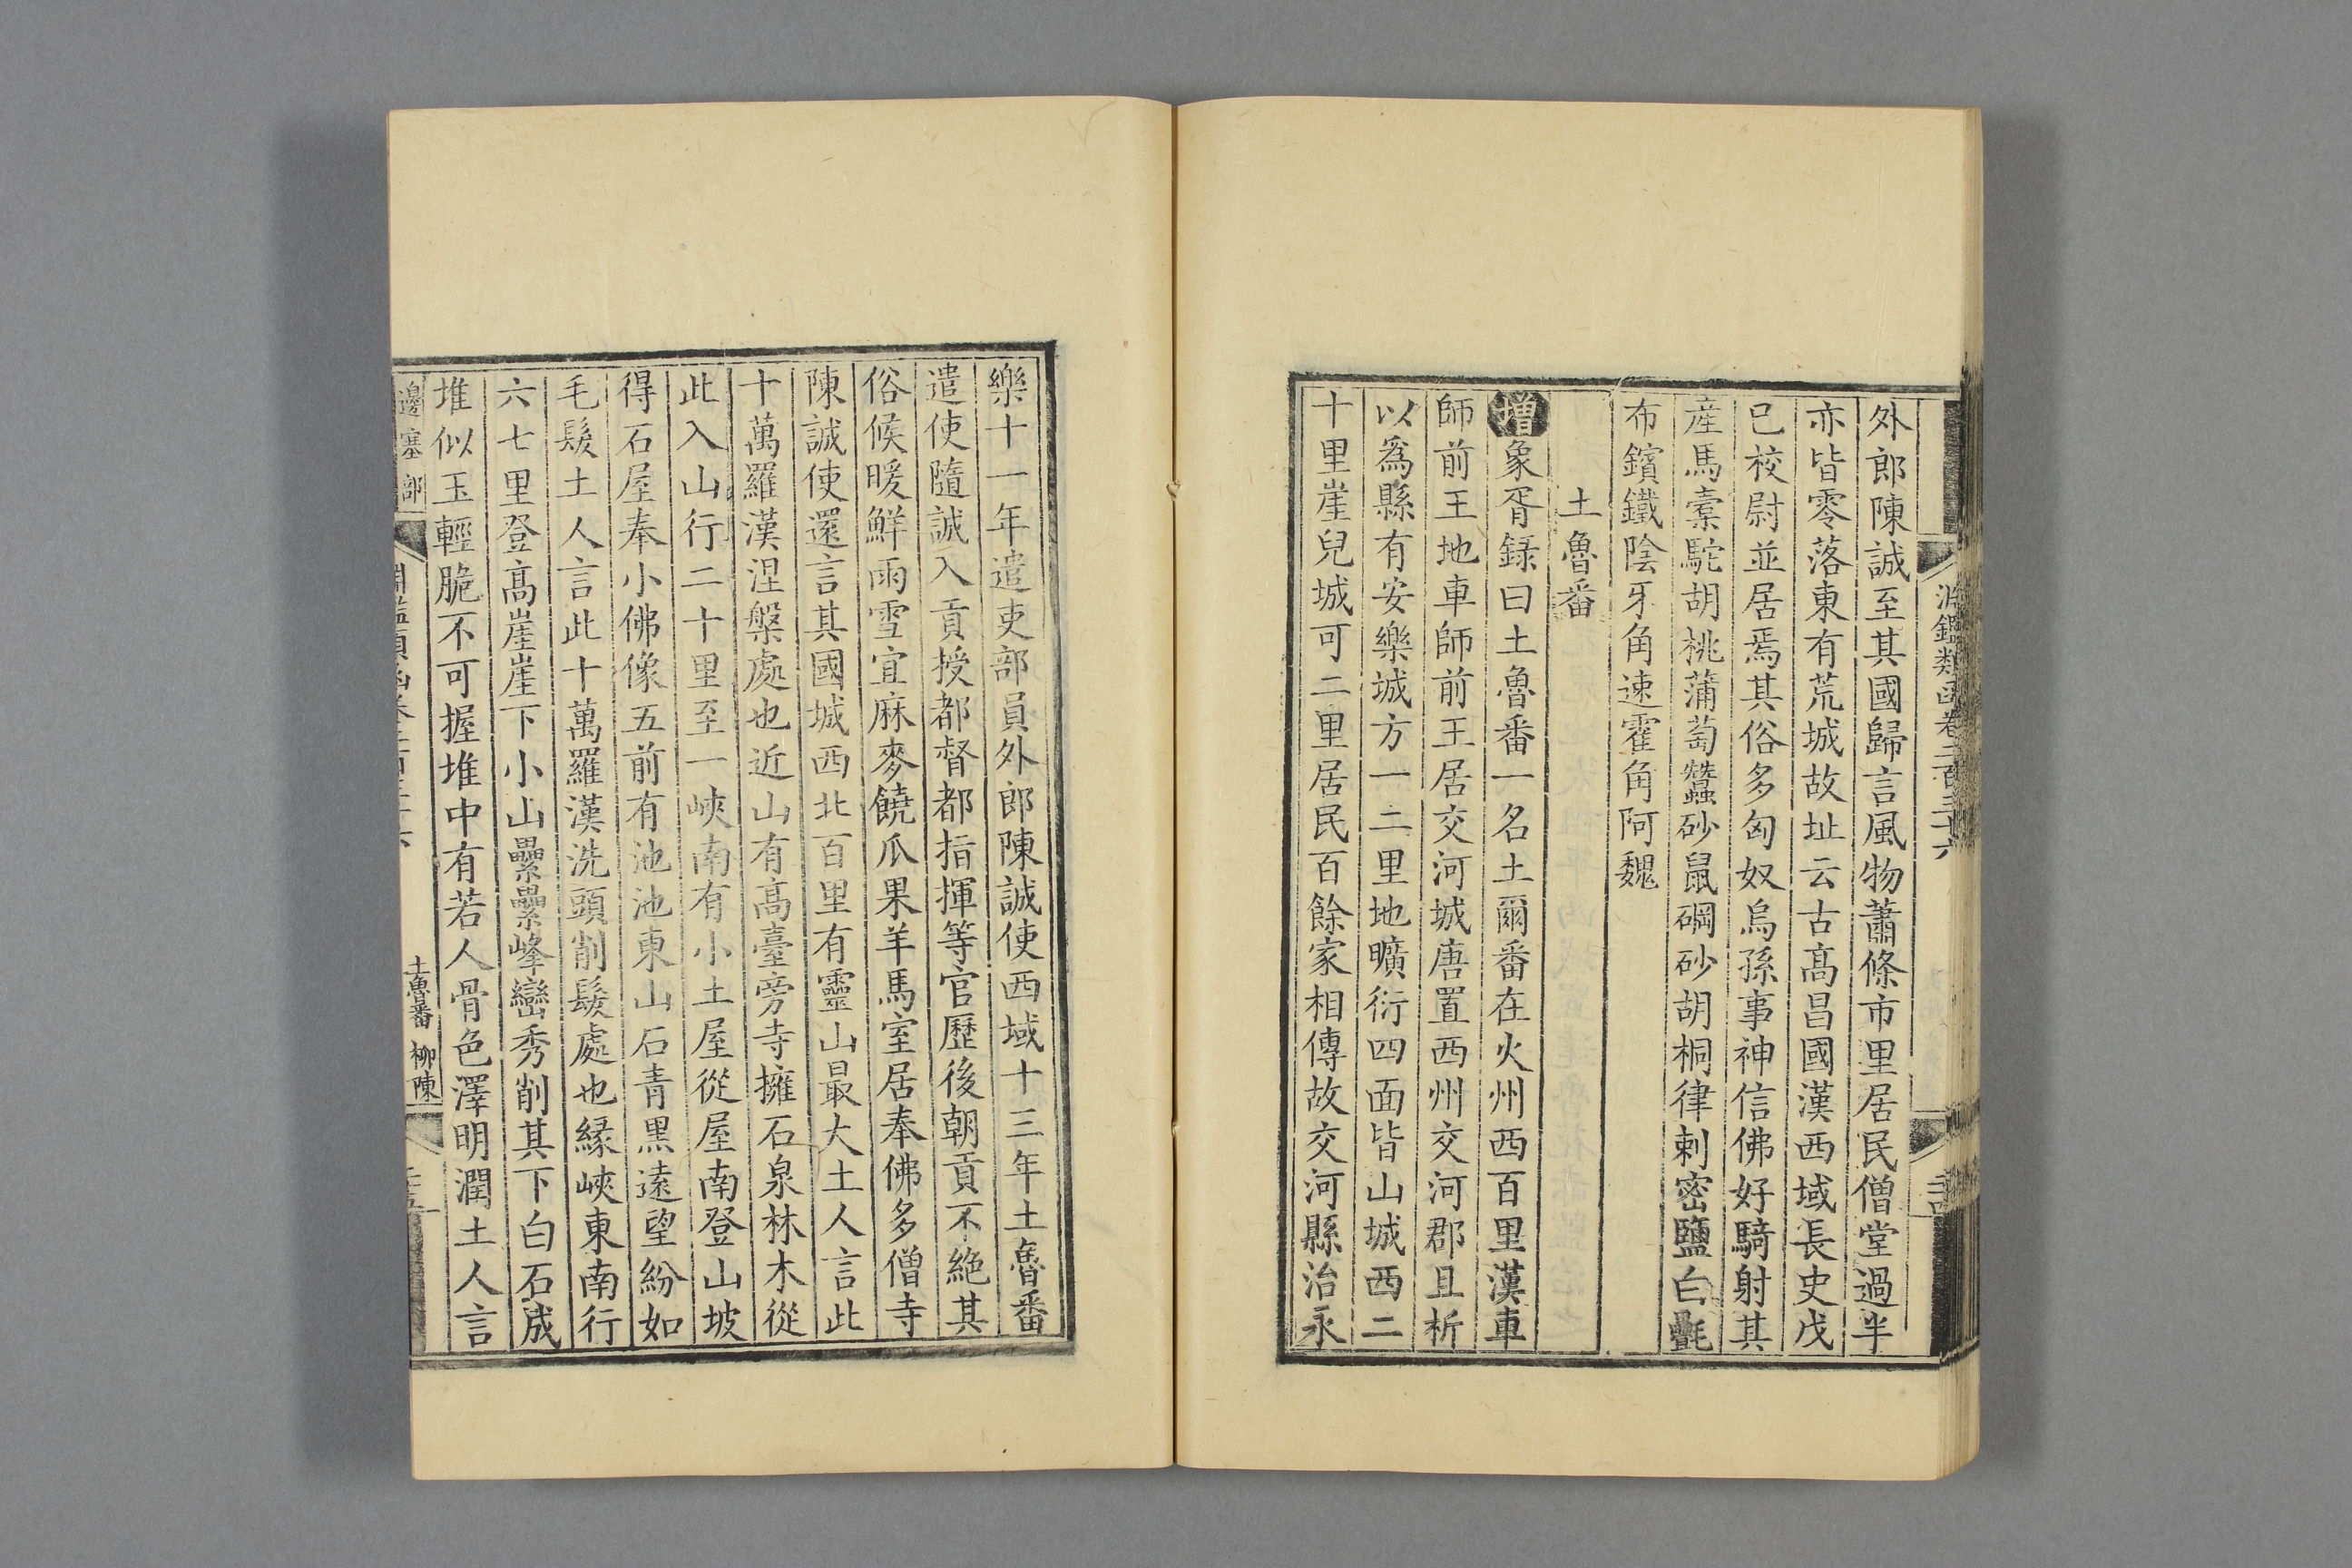 外郎陳誠至其國歸言風物蕭條市里居民僧堂過半
亦皆零落東有荒城故址云古高昌國漢西域長史戊
巳校尉並居焉其俗多匈奴烏孫事神信佛好騎射其
産馬槖駝胡桃蒲萄蠶砂鼠碙砂胡桐律刺密鹽白㲲
布鑌鐵陰牙角速霍角阿魏
土魯番
增象胥録曰土魯番一名土爾番在火州西百里漢車
師前王地車師前王居交河城唐置西州交河郡且析
以爲縣有安樂城方一二里地曠衍四面皆山城西二
十里崖兒城可二里居民百餘家相傳故交河縣治永
樂十一年遣吏部員外郎陳誠使西域十三年土魯番
遣使隨誠入貢授都督都指揮等官歷後朝貢不絶其
俗候暖鮮雨雪宜麻麥饒瓜果羊馬室居奉佛多僧寺
陳誠使還言其國城西北百里有靈山最大土人言此
十萬羅漢涅槃處也近山有高臺旁寺擁石泉林木從
此入山行二十里至一峽南有小土屋從屋南登山坡
得石屋奉小佛像五前有池池東山石青黒遠望紛如
毛髮土人言此十萬羅漢洗頭削髮處也緣峽東南行
六七里登高崖崖下小山纍纍峰巒秀削其下白石成
堆似玉輕脆不可握堆中有若人骨色澤明潤土人言
邊塞部
土魯番 柳陳